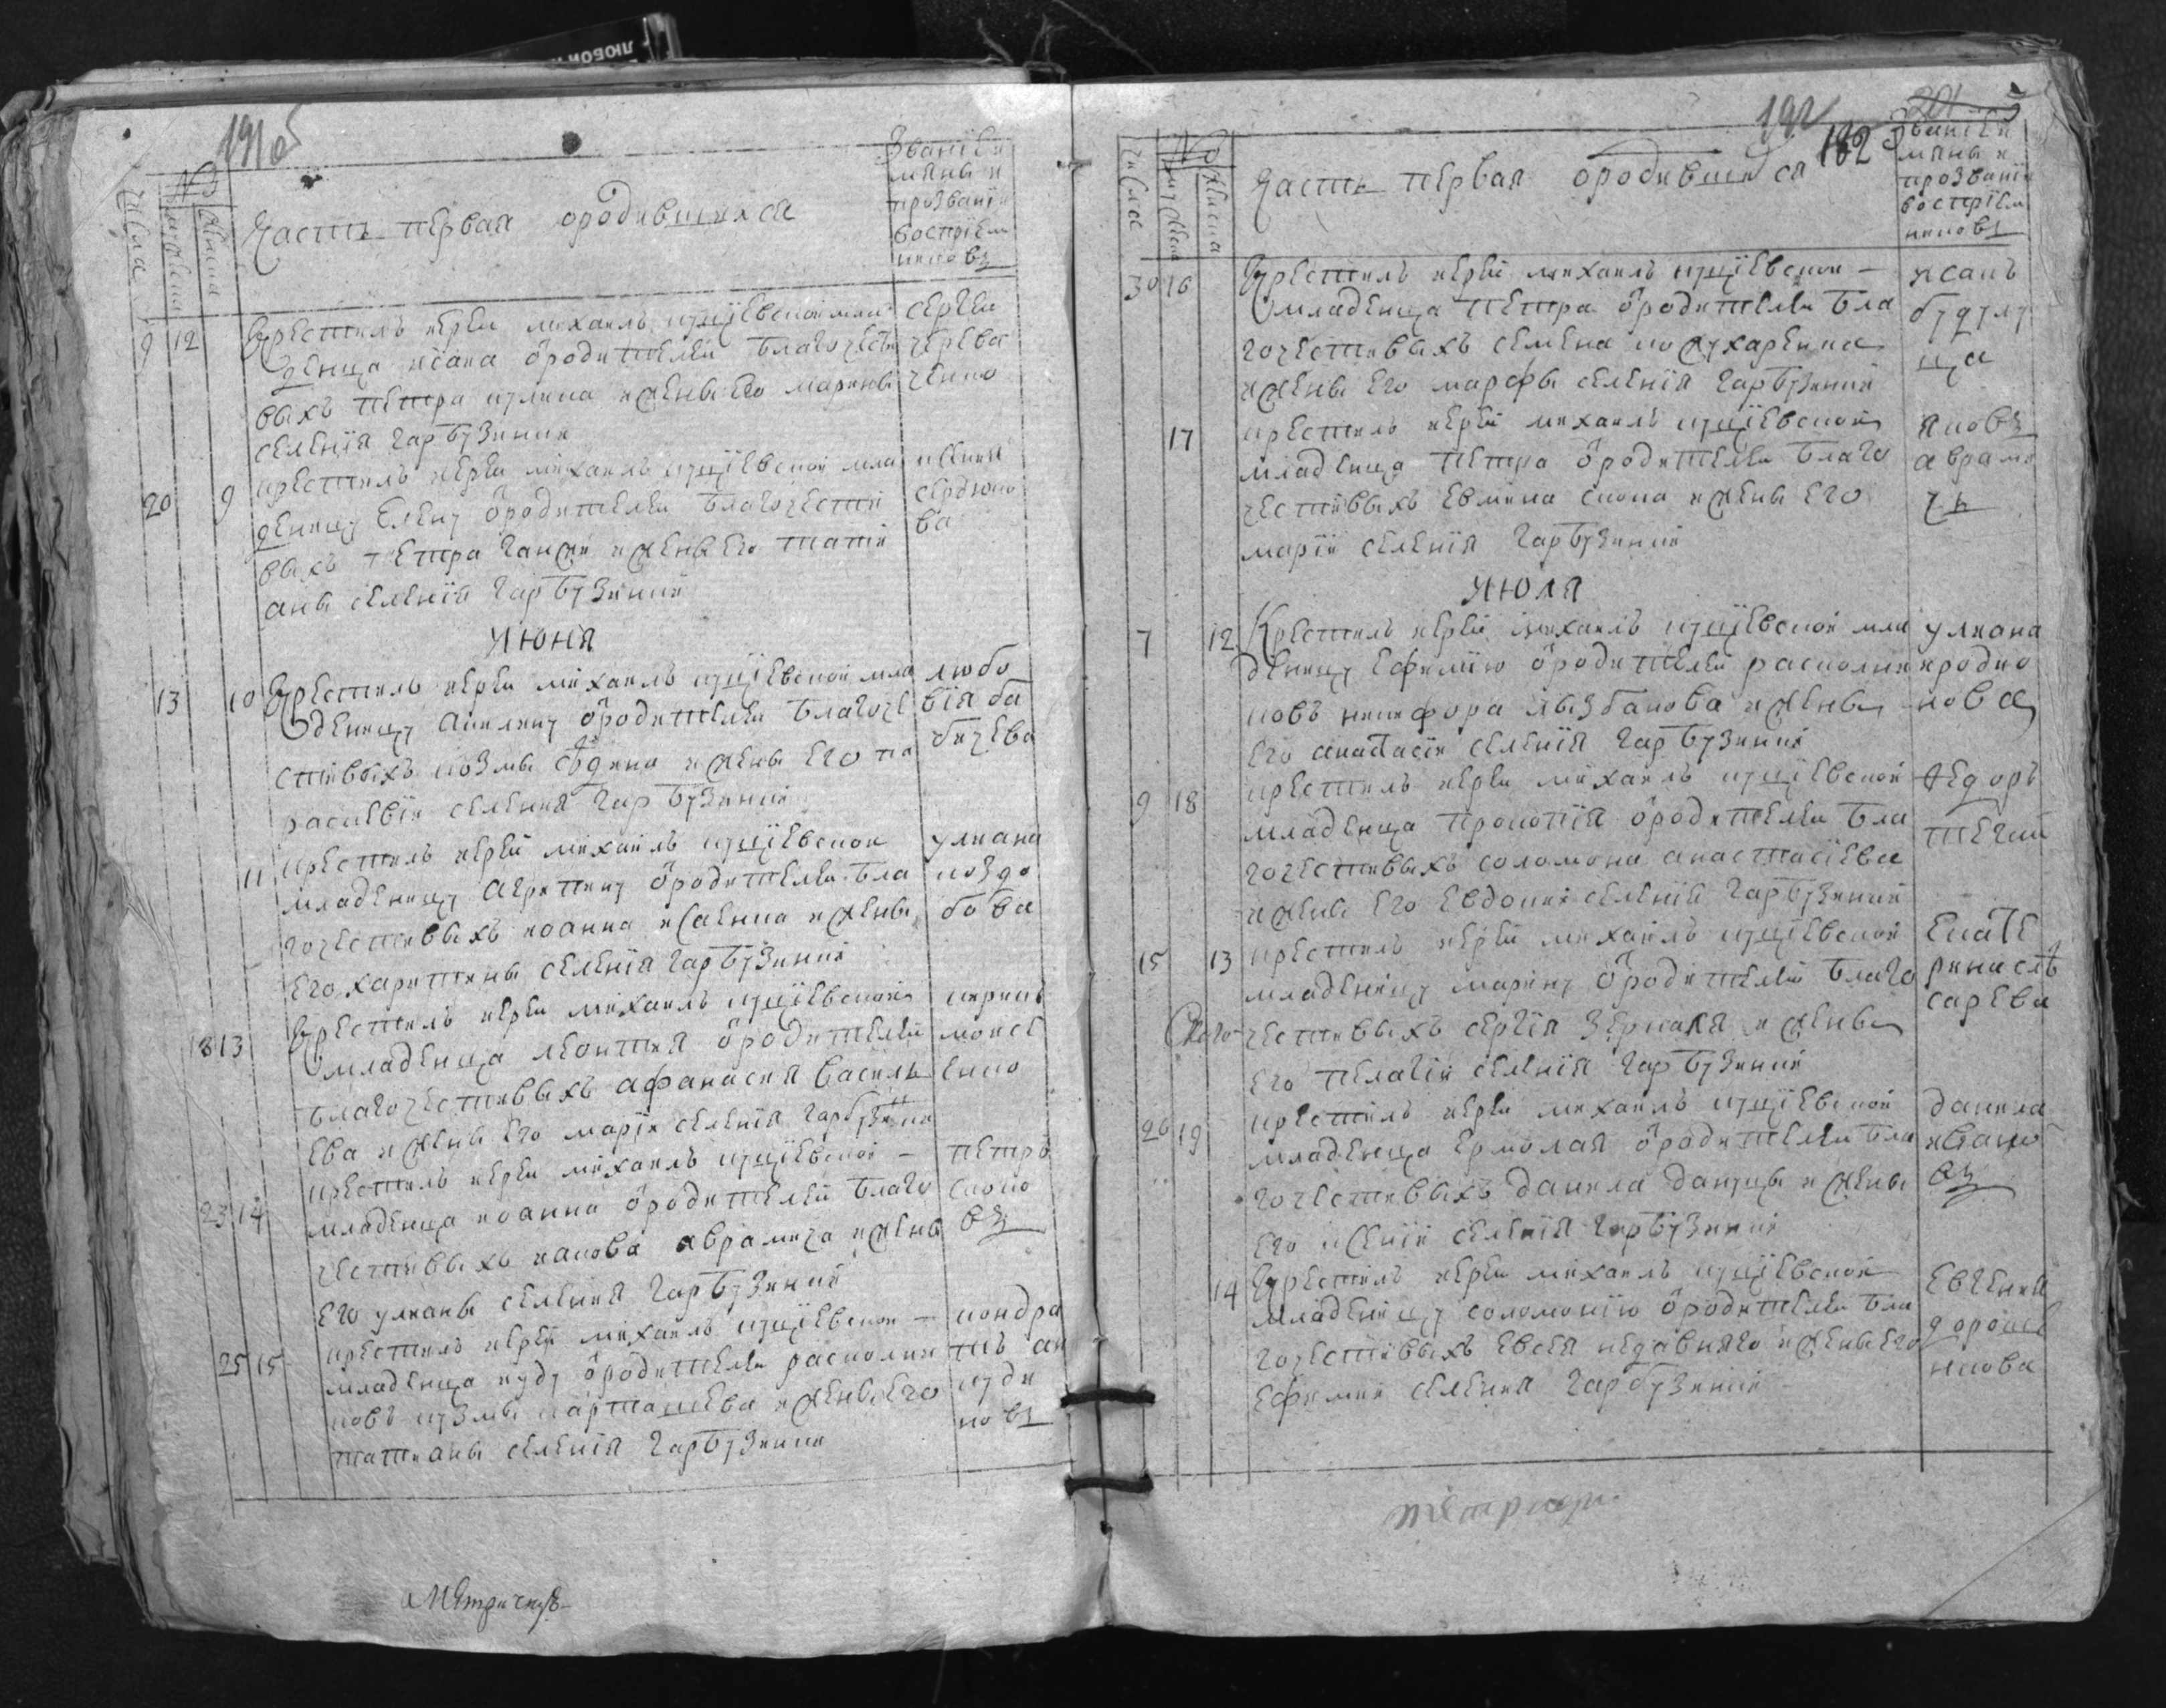 ЛЮБОЙ
191 об
числа
№
мужеска
женска
Часть первая ородившихся
Званїе и
мѧны и
прозванїи
воспрїем
никовъ
9 12 Крестилъ иерѣи михаилъ куцїевскои мла
денца исака ѿродителей благочести
выхъ петра кулика ижены его марины
селенїя гарбузинки
сергѣи
чернен
20 9 крестилъ иерѣи михаилъ куцїевскои мла
деницу елену ѿродителей благочести
выхъ петра ганжи ижены его татиꙗ
аны селенїя гарбузинки
ксенїя
сердюко
ва
Июня
13 10 Крестилъ иерѣи михаилъ куцїевскои мла
деницу акилену ѿродителей благоче
стивыхъ козмы ижены его па
расꙗевїи селения гарбузинки
любо
вїя ба
бичева
11 крестилъ иерѣй михаилъ куцїевскои
младеницу агрепену ѿродителей бла
гочестивыхъ иоанна исаенка ижены
его харитины селенїя гарбузинки
улиана
коздо
бова
18 13 Крестилъ иерѣи михаилъ куцїевскои
младенца леонтия ѿродителей
благочестивыхъ афанасия василь
ева ижены его марїи селенїя гарбузинки
кирикъ
моисе
енко
23 14 крестилъ иерѣи михаилъ куцїевской
младенца иоанна ѿродителей благо
честивыхъ иакова аврамича ижены
его улианы селения гарбузинки
петръ
скоко
въ
25 15 крестилъ иерѣй михаилъ куцїевскои
младенца иуду ѿродителей расколни
ковъ кузмы карташева ижены его
татианы селенїя гарбузинки
кондра
тъ ак
куди
новъ
Метричную
192
201
182
числа
№
мужеска
женска
Часть первая ородившихся
Званїе и
мѧны и
прозванїи
воспрїем
никовъ
30 16 Крестилъ иерѣй михаилъ куцїевскои
младенца петра ѿродителей бла
гочестивыхъ семена кожухаренка
ижены его марфы селенїя гарбузинки
исакъ
17 крестилъ иерѣй михаилъ куцїевской
младенца петра ѿродителей благо
честивыхъ евмена скока ижены его
марїи селенїя гарбузинки
яковъ
аврами
чь
Июля
7 12 Крестилъ иерѣй михаилъ куцїевскои мла
деницу ефимїю ѿродителей расколни
ковъ никифора ижены
его анастасїи селенїя гарбузинки
улиана
иродио
нова
9 18 крестилъ иерѣи михаилъ куцїевской
младенца прокопїя ѿродителей бла
гочестивыхъ соломона анастасїева
ижены его евдокии селенїя гарбузинки
федоръ
15 13 крестилъ иерѣй михаилъ куцїевской
младеницу марину ѿродителей благо
честивыхъ сергїя ижены
его пелагїи селенїя гарбузинки
екате
рина слѣ
сарева
26 19 крестилъ иерѣи михаилъ куцїевской
младенца ермолая ѿродителей бла
гочестивыхъ данила данцы ижены
его ксенїи селенїя гарбузинки
данила
ивано
въ
14 Крестилъ иерѣи михаилъ куцїевской
младеницу соломонїю ѿродителей бла
гочестивыхъ евсея недавняго ижены его
ефимии селения гарбузинки
евгения
дороше
нкова